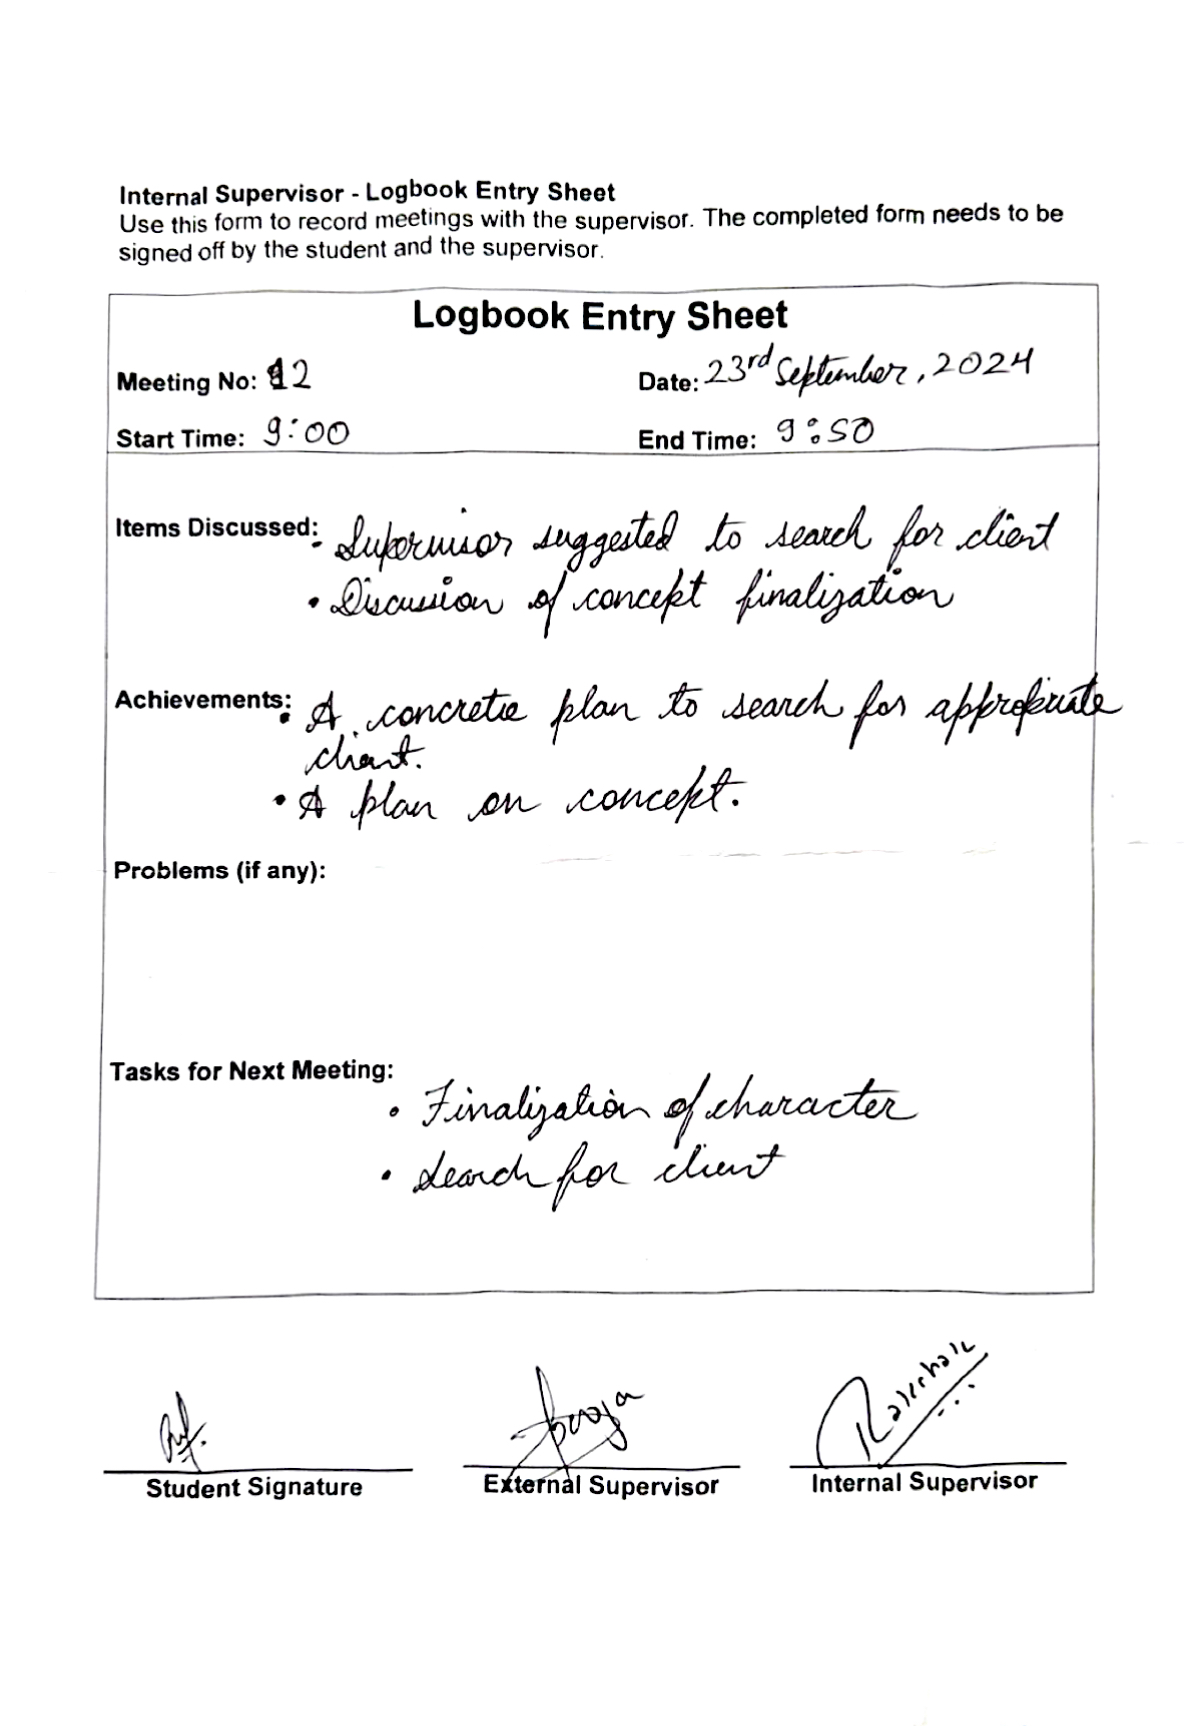 Internal Supervisor - Logbook Entry Sheet
Use this form to record meetings with the supervisor. The completed form needs to be
signed off by the student and the supervisor.
Logbook Entry Sheet
Meeting No: 12 Date: 23rd September, 2024
Start Time: 9:00 End Time: 9:50
Items Discussed:
- Supervisor suggested to search for client
• Discussion of concept finalization
Achievements:
• A concrete plan to search for appropriate
client.
• A plan on concept.
Problems (if any):
Tasks for Next Meeting:
• Finalization of character
• Search for client
Student Signature External Supervisor Internal Supervisor